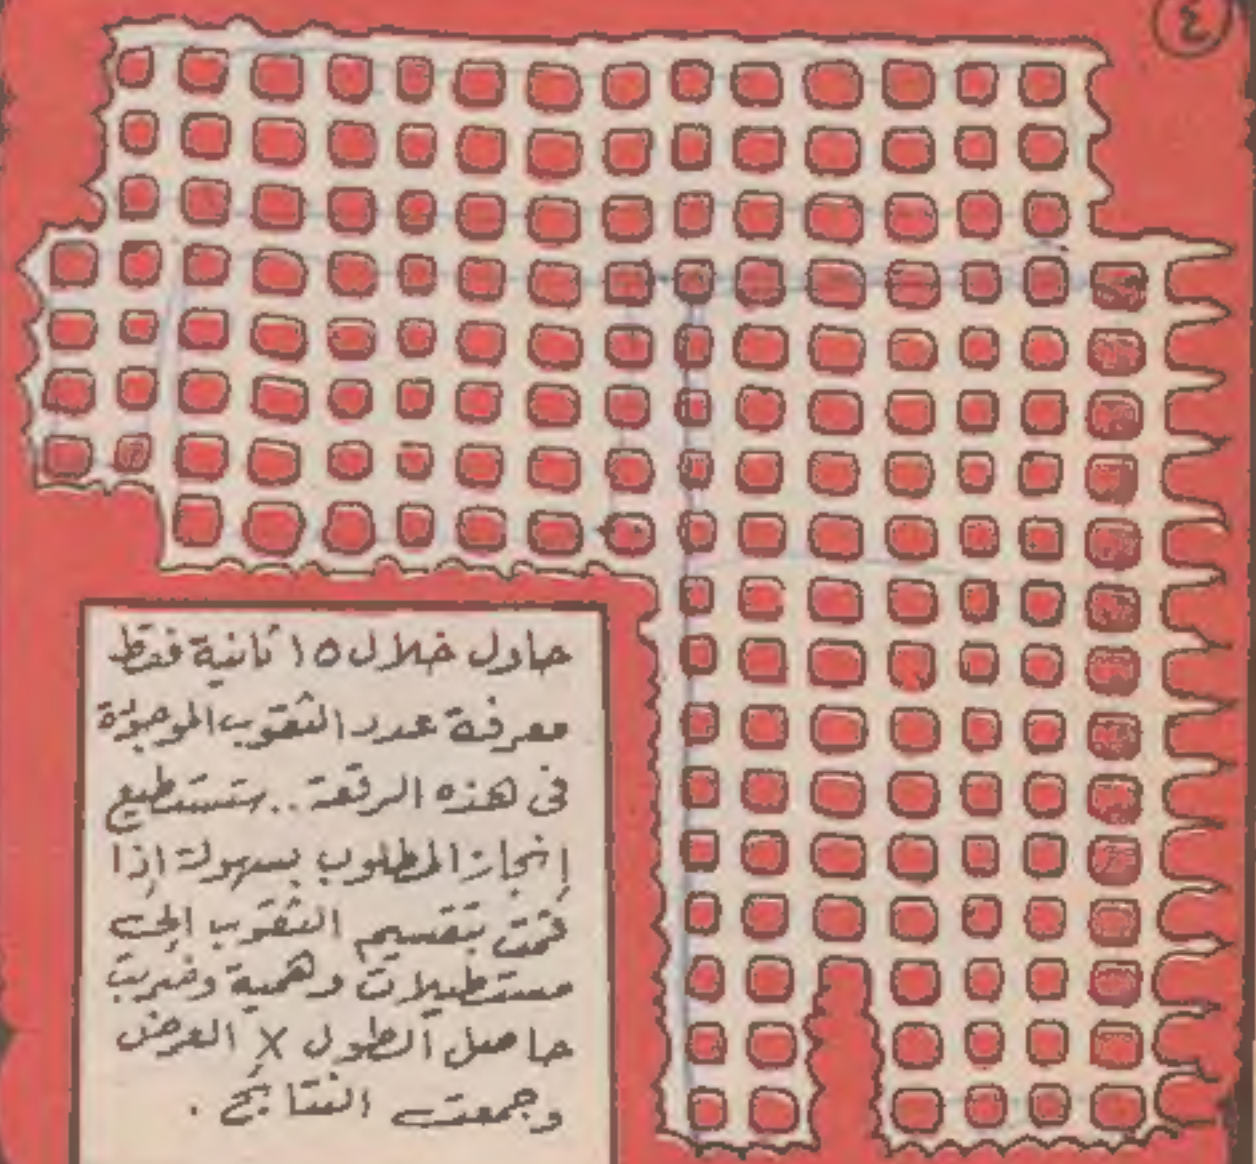 ٤
حاول خلال ١٥ ثانية فقط
معرفة عدد الثقوب الموجودة
فى هذه الرقعة .. ستستطيع
إنجاز المطلوب بسهولة إذا
قمت بتقسيم الثقوب إلى
مستطيلات وهمية وضربت
حاصل الطول × العرض
وجمعت النتائج .